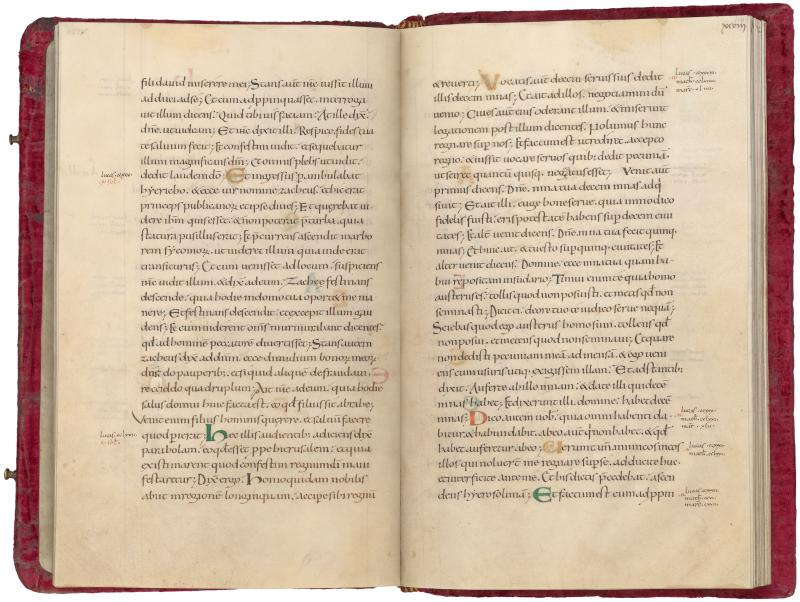 fili david miserere mei; Stans aut ihc iussit illum
ad duci ad se; Et cum adppinquasset. interroga
uit illum dicens. Quid tibi uis faciam; At ille dx.
dne. ut uidam; Et ihc dxit illi. Respice. fides tua
te saluum fecit; Et confestim uidit. et sequebatur
illum magnificans dm; Et omnis plebs ut uidit.
dedit laudem do; Et ingressus pambulabat
hyericho. & ecce uir nomine zacheus. & hic erat
princeps publicanor et ipse diues; Et querebat ui
dere ihm quis esset. & non poterat p turba. quia
statura pusillus erat; Et pcurrens ascendit in arbo
rem sycomor. ut uideret illum quia inde erat
transiturus; Et cum uenisset ad locum. suspiciens
ihc uidit illum. & dx ad eum; Zachee festinans
descende. quia hodie in domo tua oportet me ma
nere; Et festinans descendit. et excepit illum gau
dens; Et cum uiderent oms murmurabant dicentes.
qd ad hominem peccatore diuertisset; Stans autem
zacheus dx ad dnm. ecce dimidium bonor meor.
dne do pauperib; et si quid aliquem defraudaui.
reddo quadruplum; Ait ihc ad eum. quia hodie
salus domui huic facta est. eo qd filius sit abrahe;
Venit enim filius hominis querere. et saluum facere
quod perierat; Hec illis audientib; adiciens dx
parabolam. eo qd esset ppe hierusalem. et quia
existimarent quod confestim regnum di mani
festaretur; Dx ergo. Homo quidam nobilis
abiit in regionem longinquam. accipe sibi regnu
& reuerti; Vocatis aut decem seruis suis dedit
illis decem mnas; Et ait ad illos. negotiamini du
uenio; Ciues aut eius oderant illum. & miserunt
legationem post illum dicentes. Nolumus hunc
regnare sup nos; Et factum est ut rediret accepto
regno. & iussit uocare seruos quib; dedit pecunia.
ut sciret quantu quisq; negotiatus esset; Venit aut
primus dicens. Dne. mna tua decem mnas adq
siuit; Et ait illi. euge bone serue. quia in modico
fidelis fuisti. eris potestate habens sup decem ciui
tates; Et alt uenit dicens. Dne. mna tua fecit quinq;
mnas; Et huic ait. & tu esto sup quinq; ciuitates; Et
alter uenit dicens. Domine. ecce mna tua quam ha
bui reposita in sudario; Timui enim te quia homo
austerus es. tollis quod non posuisti. et metis qd non
seminasti; Dicit ei. de ore tuo te iudico serue nequa;
Sciebas quod ego austerus homo sum. tollens qd
non posui. et metens quod non seminaui; Et quare
non dedisti pecuniam mea ad mensa. & ego ueni
ens cum usuris utiq; exigissem illam; Et adstantib;
dixit. Auferte ab illo mnam. & date illi qui dece
mnas habet; Et dixerunt illi. domine. habet dece
mnas; Dico autem uob. quia omni habenti da
bitur. & habundabit. ab eo aut q non habet. & qd
habet auferetur ab eo; Verum tam inimicos meos
illos qui noluert me regnare sup se. adducite huc.
et interficite ante me. Et his dictis pcedebat. ascen
dens hyerosolima; Et factum est cum adppin